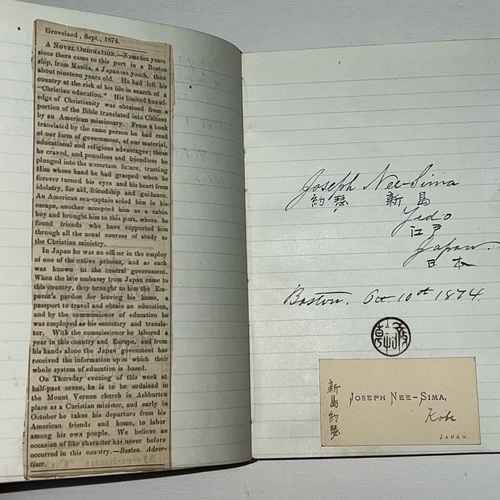 Groveland, Sept., 1874.
A NOVEL ORDINATION.—Some ten years
since there came to this port in a Boston
ship, from Manila, a Japanese youth, then
about nineteen years old. He had left his
country at the risk of his life in search of a
"Christian education." His limited knowl-
edge of Christianity was obtained from a
portion of the Bible translated into Chinese
by an American missionary. From a book
translated by the same person he had read
of our form of government, of our material,
educational and religious advantages; these
he craved, and penniless and friendless he
plunged into the uncertain future, trusting
Him whose hand he had grasped when he
forever turned his eyes and his heart from
idolatry, for aid, friendship and guidance.
An American sea-captain aided him in his
escape, another accepted him as a cabin
boy and brought him to this port, where he
found friends who have supported him
through all the usual courses of study to
the Christian ministry.
In Japan he was an officer in the employ
of one of the native princes, and as such
was known to the central government.
When the late embassy from Japan came to
this country, they brought to him the Em-
peror's pardon for leaving his home, a
passport to travel and obtain an education,
and by the commissioner of education he
was employed as his secretary and transla-
tor. With the commissioner he labored a
year in this country and Europe, and from
his hands alone the Japan government has
received the information upon which their
whole system of education is based.
On Thursday evening of this week at
half-past seven, he is to be ordained in
the Mount Vernon church in Ashburton
place as a Christian minister, and early in
October he takes his departure from his
American friends and home, to labor
among his own people. We believe an
occasion of like character has never before
occurred in this country.—Boston. Adver-
tiser.
Joseph Nee-Sima
約瑟 新島
Yedo
江戸
Japan.
日本
Boston. Oct 10th 1874.
新島約瑟
JOSEPH NEE-SIMA,
Kobe
JAPAN.